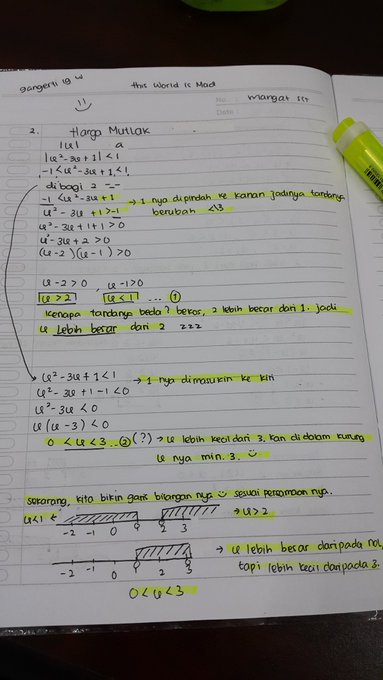 gangerti ig w
this World is Mad
No.: mangat str
Date:
2. Harga Mutlak
|u| a
|u²-3u+1| < 1
-1 < u²-3u+1 < 1
dibagi 2 --
-1 < u²-3u+1
u²-3u+1>-1 → 1 nya dipindah ke kanan jadinya tandanya
berubah <\3
u²-3u+1+1>0
u²-3u+2>0
(u-2)(u-1)>0
u-2>0 , u-1>0
u>2 u<1 ... ①
Kenapa tandanya beda? bekos, 2 lebih besar dari 1. jadi
u lebih besar dari 2 zzz
u²-3u+1<1 → 1 nya dimasukin ke kiri
u²-3u+1-1<0
u²-3u<0
u(u-3)<0
0<u<3 ..② (?) → u lebih kecil dari 3, kan di dalam kurung
u nya min.3.
sekarang, kita bikin garis bilangan nya sesuai persamaan nya.
u<1 ← → u>2
-2 -1 0 1 2 3
→ u lebih besar daripada nol,
tapi lebih kecil daripada 3.
-2 -1 0 1 2 3
0<u<3